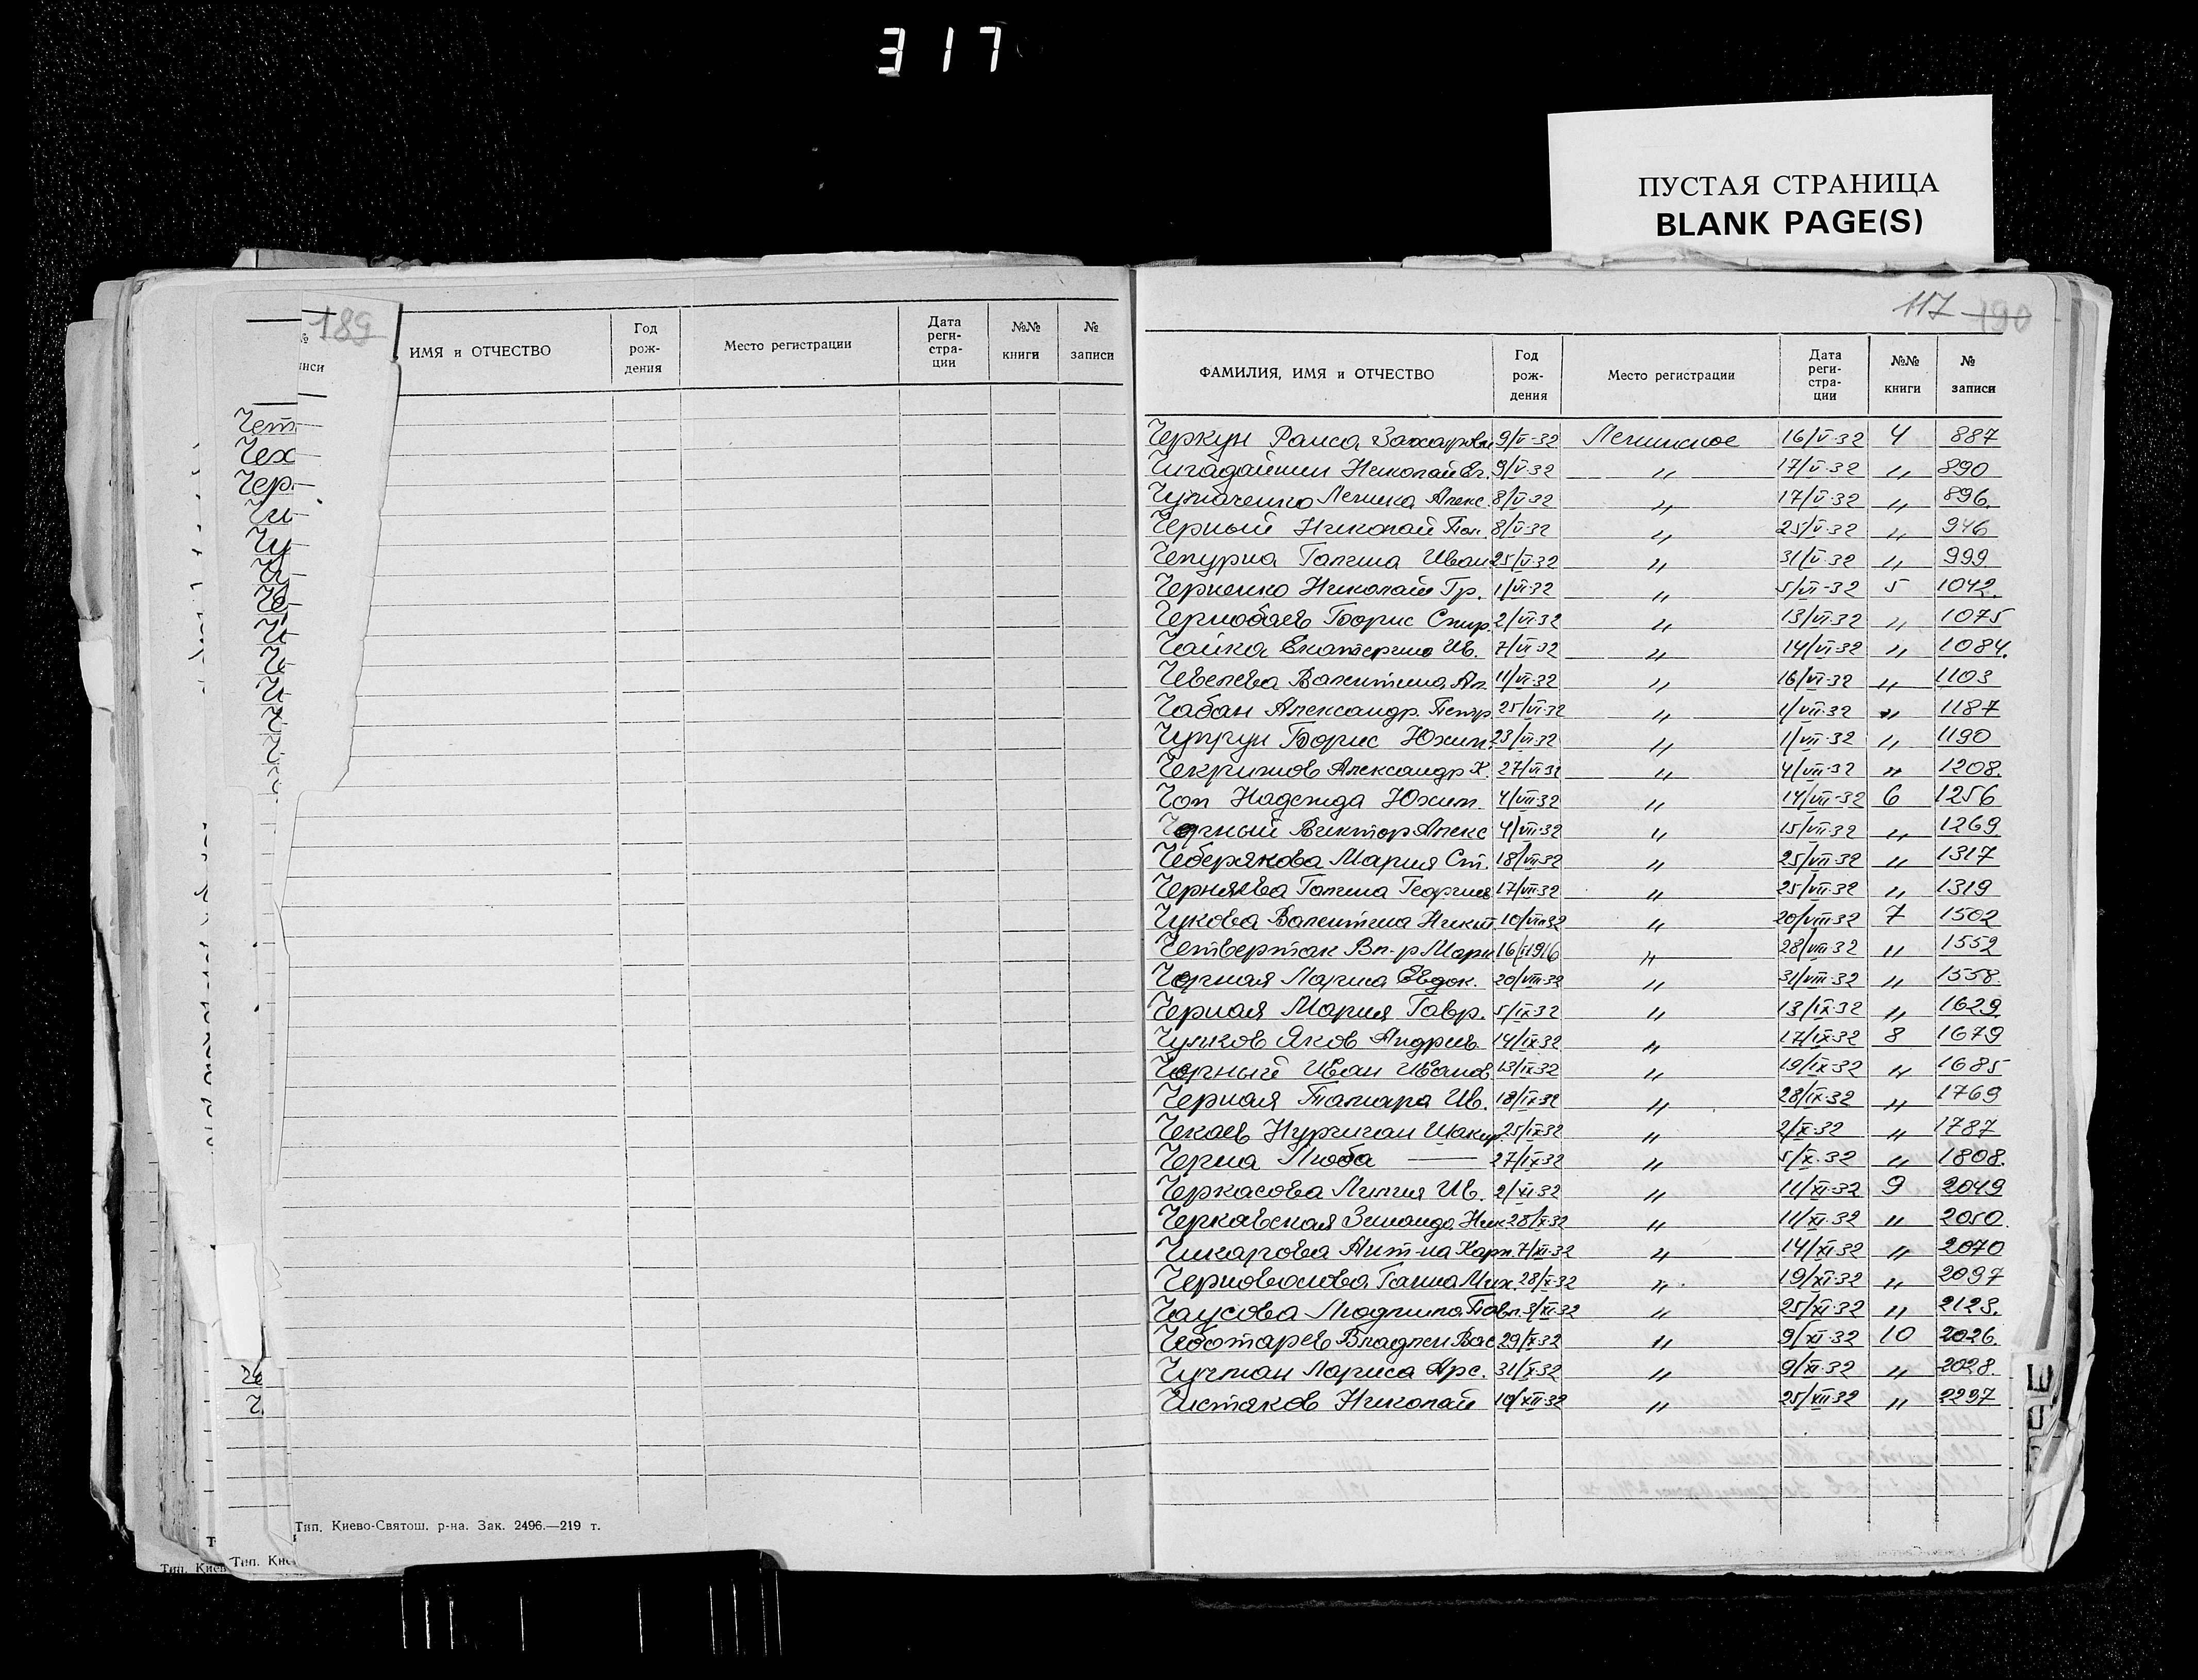 317
ПУСТАЯ СТРАНИЦА
BLANK PAGE(S)
189
ИМЯ и ОТЧЕСТВО Год рож- дения Место регистрации Дата реги- стра- ции №№ книги № записи
Тип. Киево-Святош. р-на. Зак. 2496.—219 т.
117 190
ФАМИЛИЯ, ИМЯ и ОТЧЕСТВО Год рож- дения Место регистрации Дата реги- стра- ции №№ книги № записи
Черкун Раиса Захаровн 9/V-32 Ленинское 16/V-32 4 887
Чигадайкин Николай Ег. 9/V-32 " 17/V-32 " 890
Леника Алекс. 8/V-32 " 17/V-32 " 896
Черный Николай Пол. 8/V-32 " 25/V-32 " 946
Чепурна Галина Иван 25/V-32 " 31/V-32 " 999
Черненко Николай Гр. 1/VI-32 " 5/VI-32 5 1042
Чернобаев Борис Спир. 2/VI-32 " 13/VI-32 " 1075
Чайка Екатерина Ив. 7/VI-32 " 14/VI-32 " 1084
Чевелева Валентина Ал. 11/VI-32 " 16/VI-32 " 1103
Чабан Александр Петр 25/VI-32 " 1/VII-32 " 1187
Чупрун Борис Юхим. 23/VI-32 " 1/VII-32 " 1190
Чекрижов Александр К. 27/VI-32 " 4/VII-32 " 1208
Чоп Надежда Юхим. 4/VII-32 " 14/VII-32 6 1256
Чорный Виктор Алекс 4/VII-32 " 15/VII-32 " 1269
Чеберякова Мария Ст. 18/VII-32 " 25/VII-32 " 1317
Черняева Галина Георгиев 17/VII-32 " 25/VII-32 " 1319
Чукова Валентина Никит 10/VIII-32 " 20/VIII-32 7 1502
Четвертак Вл-р Марк 16/ 1916 " 28/VIII-32 " 1552
Чорная Лариса Евдок. 20/VIII-32 " 31/VIII-32 " 1558
Черная Мария Гавр. 5/IX-32 " 13/IX-32 " 1629
Чумков Яков Андреев 14/IX-32 " 17/IX-32 8 1679
Чорный Иван Иванов 13/IX-32 " 19/IX-32 " 1685
Черная Тамара Ив. 18/IX-32 " 28/IX-32 " 1769
Чекаев Нургиган Шакир. 25/IX-32 " 2/X-32 " 1787
Черна Люба — 27/IX-32 " 5/X-32 " 1808
Черкасова Лилия Ив. 2/XI-32 " 11/XI-32 9 2049
Черкавская Зинаида Ник 28/X-32 " 11/XI-32 " 2050
Чикарова Ант-на Карп. 7/XI-32 " 14/XI-32 " 2070
Черноволова Ганна Мих. 28/X-32 " 19/XI-32 " 2097
Чаусова Людмила Павл. 3/XI-32 " 25/XI-32 " 2128
Чеботарев Владлен Вас 29/X-32 " 9/XI-32 10 2026
Чучман Лариса Арс. 31/X-32 " 9/XI-32 " 2028
Чистяков Николай 10/XII-32 " 25/XII-32 " 2297